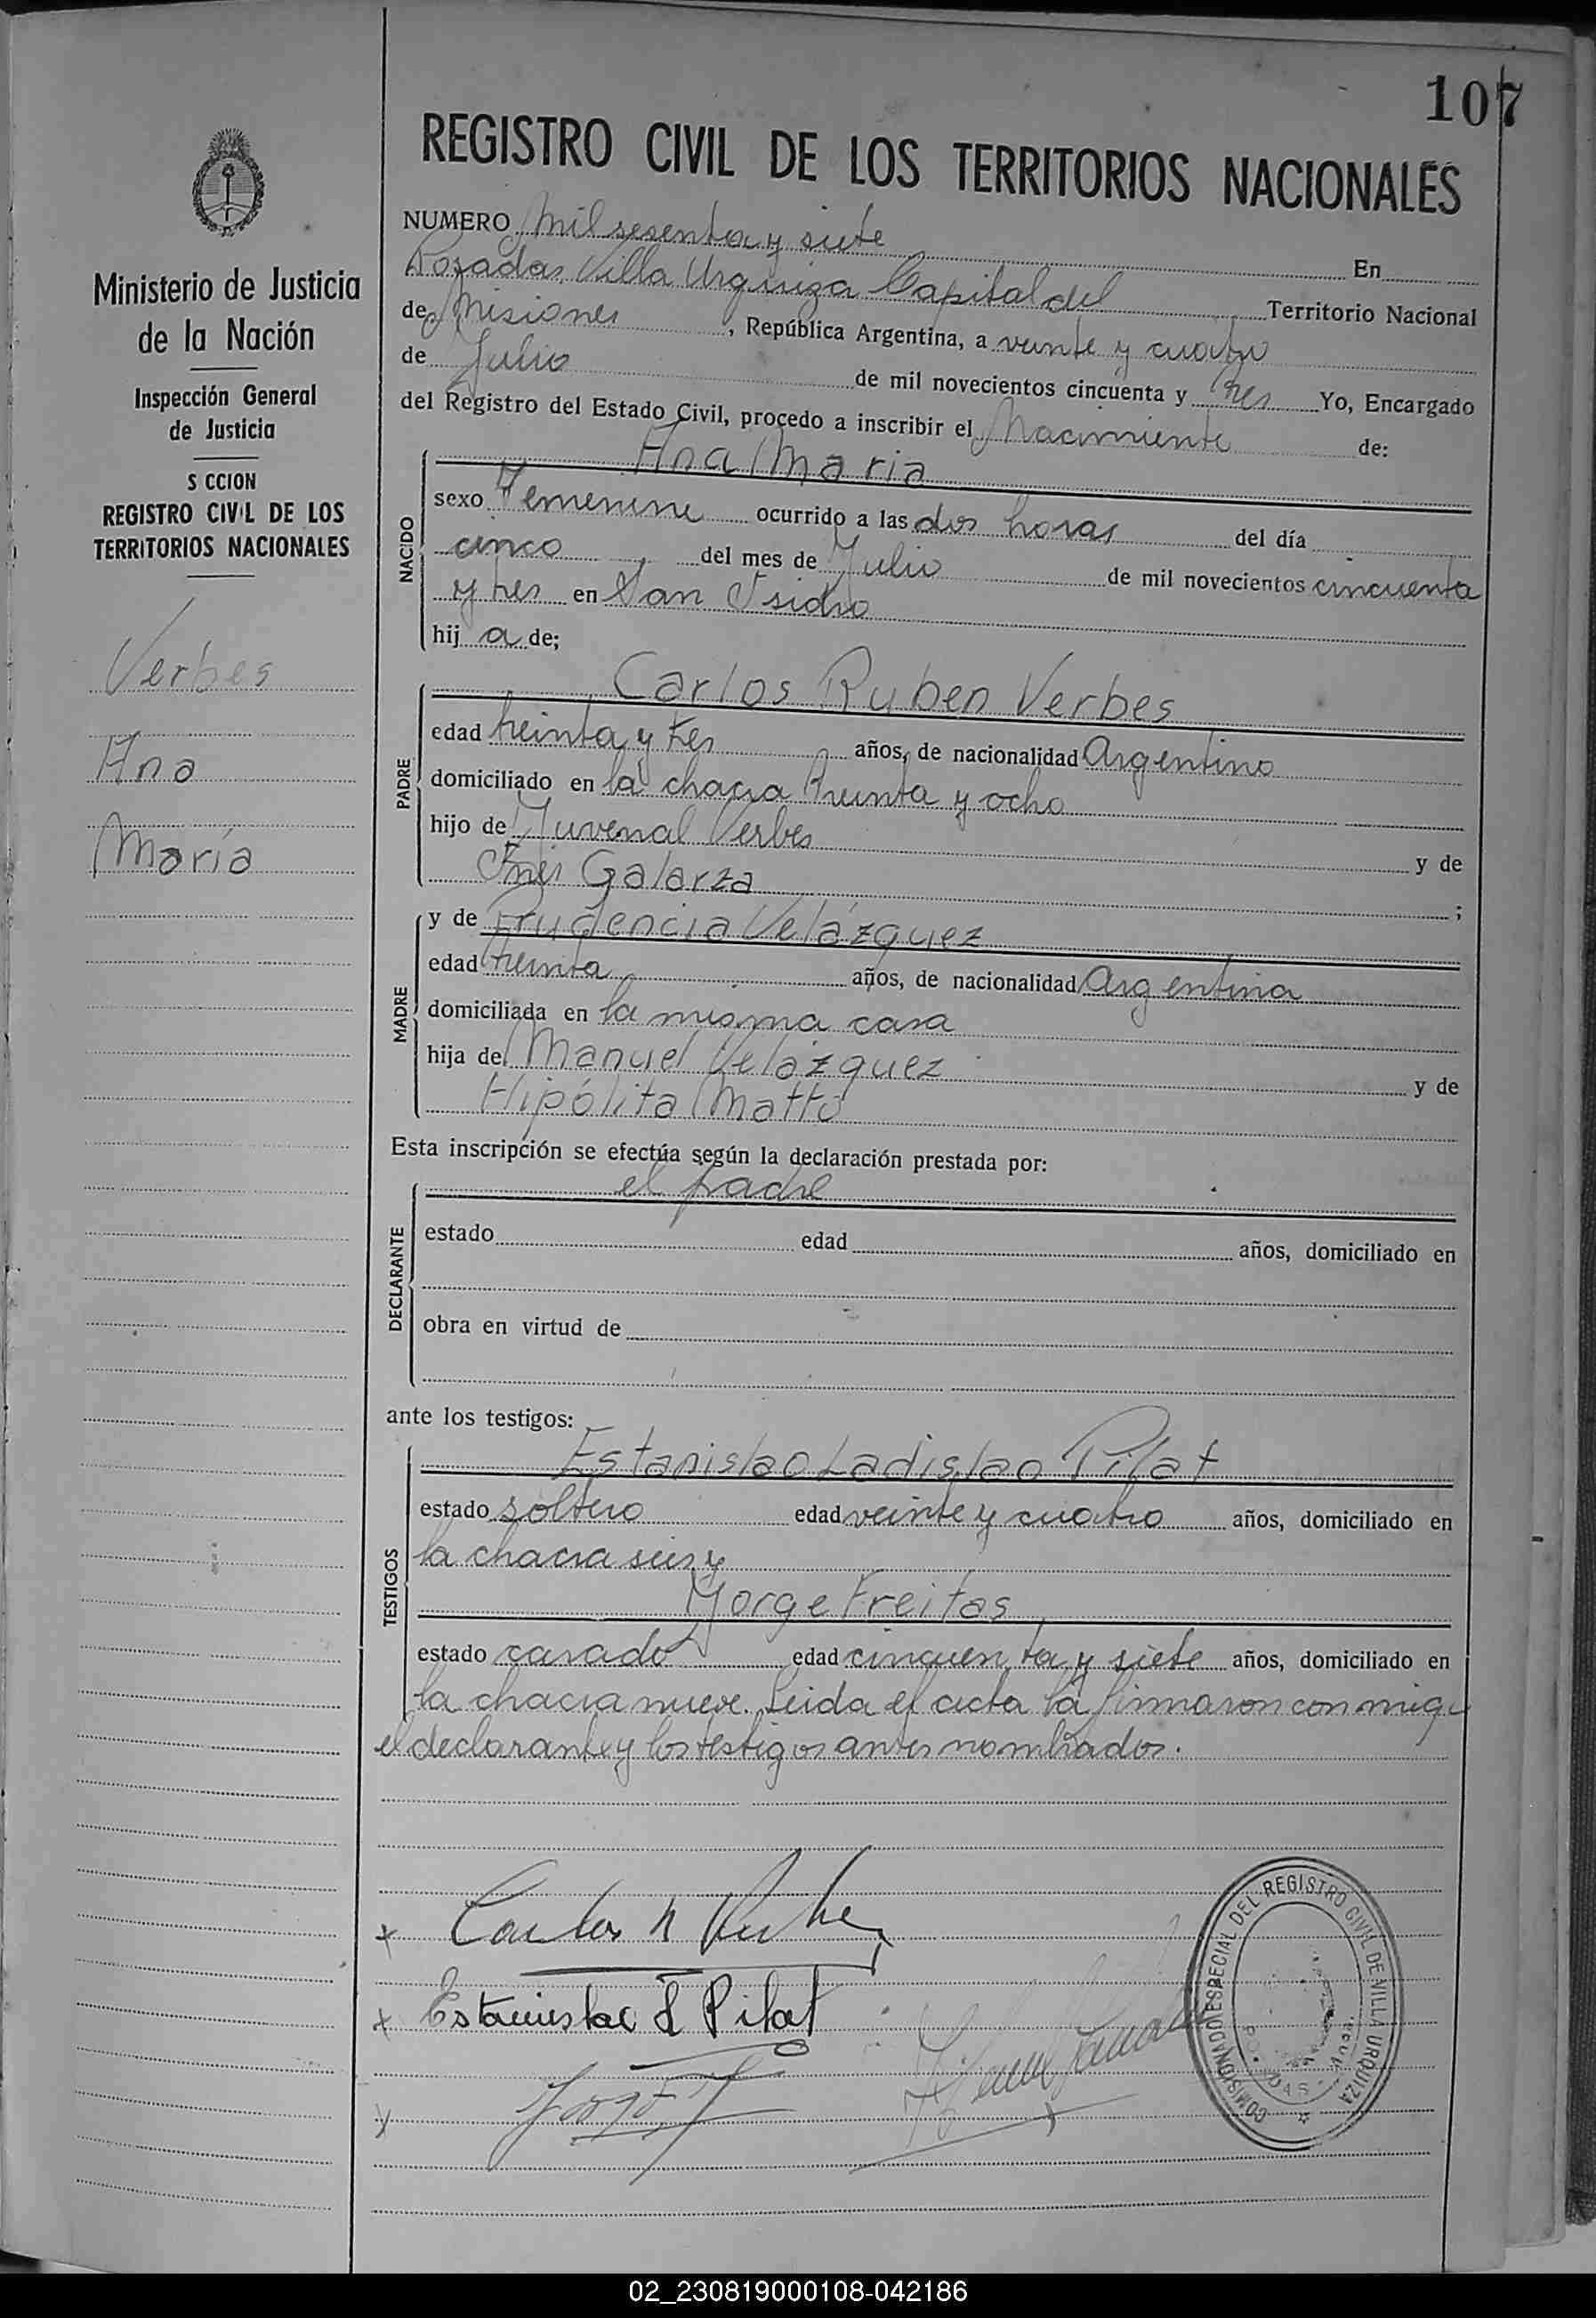 107
REGISTRO CIVIL DE LOS TERRITORIOS NACIONALES
Ministerio de Justicia
de la Nación
Inspección General
de Justicia
S CCION
REGISTRO CIVIL DE LOS
TERRITORIOS NACIONALES
Verbes
Ana
María
NUMERO Mil sesenta y siete En
Posadas, Villa Urquiza Capital del Territorio Nacional
de Misiones, República Argentina, a veinte y cuatro
de Julio de mil novecientos cincuenta y tres Yo, Encargado
del Registro del Estado Civil, procedo a inscribir el Nacimiento de:
Ana Maria
NACIDO
sexo Femenino ocurrido a las dos horas del día
cinco del mes de Julio de mil novecientos cincuenta
y tres en San Isidro
hij a de;
Carlos Ruben Verbes
PADRE
edad treinta y tres años, de nacionalidad Argentino
domiciliado en la chacra treinta y ocho
hijo de Juvenal Verbes y de
Inés Galarza ;
MADRE
y de Prudencia Velázquez
edad treinta años, de nacionalidad Argentina
domiciliada en la misma casa
hija de Manuel Velázquez y de
Hipólita Matto
Esta inscripción se efectúa según la declaración prestada por:
el padre
DECLARANTE
estado edad años, domiciliado en
obra en virtud de
ante los testigos:
Estanislao Ladislao Pilat
TESTIGOS
estado soltero edad veinte y cuatro años, domiciliado en
la chacra seis y
Jorge Freitas
estado casado edad cincuenta y siete años, domiciliado en
la chacra nueve. Leida el acta la firmaron conmigo
el declarante y los testigos antes nombrados.
Carlos R Verbes
Estanislao L Pilat
COMISIONADO ESPECIAL DEL REGISTRO CIVIL DE VILLA URQUIZA
02_230819000108-042186